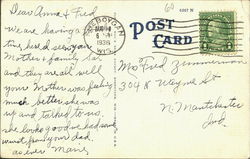 Dear Anna & Fred
we are having a
time here seen your
Mother & family
and they are all well
your Mother was feeling
much better she was
up and talked to us,
she looks good we had word
from your dad.
as ever Mary
SHEBOYGAN
1936
WIS.
POST
CARD
Mr Fred Zimmerman
304 N Wayne St
N. Manchester
Ind